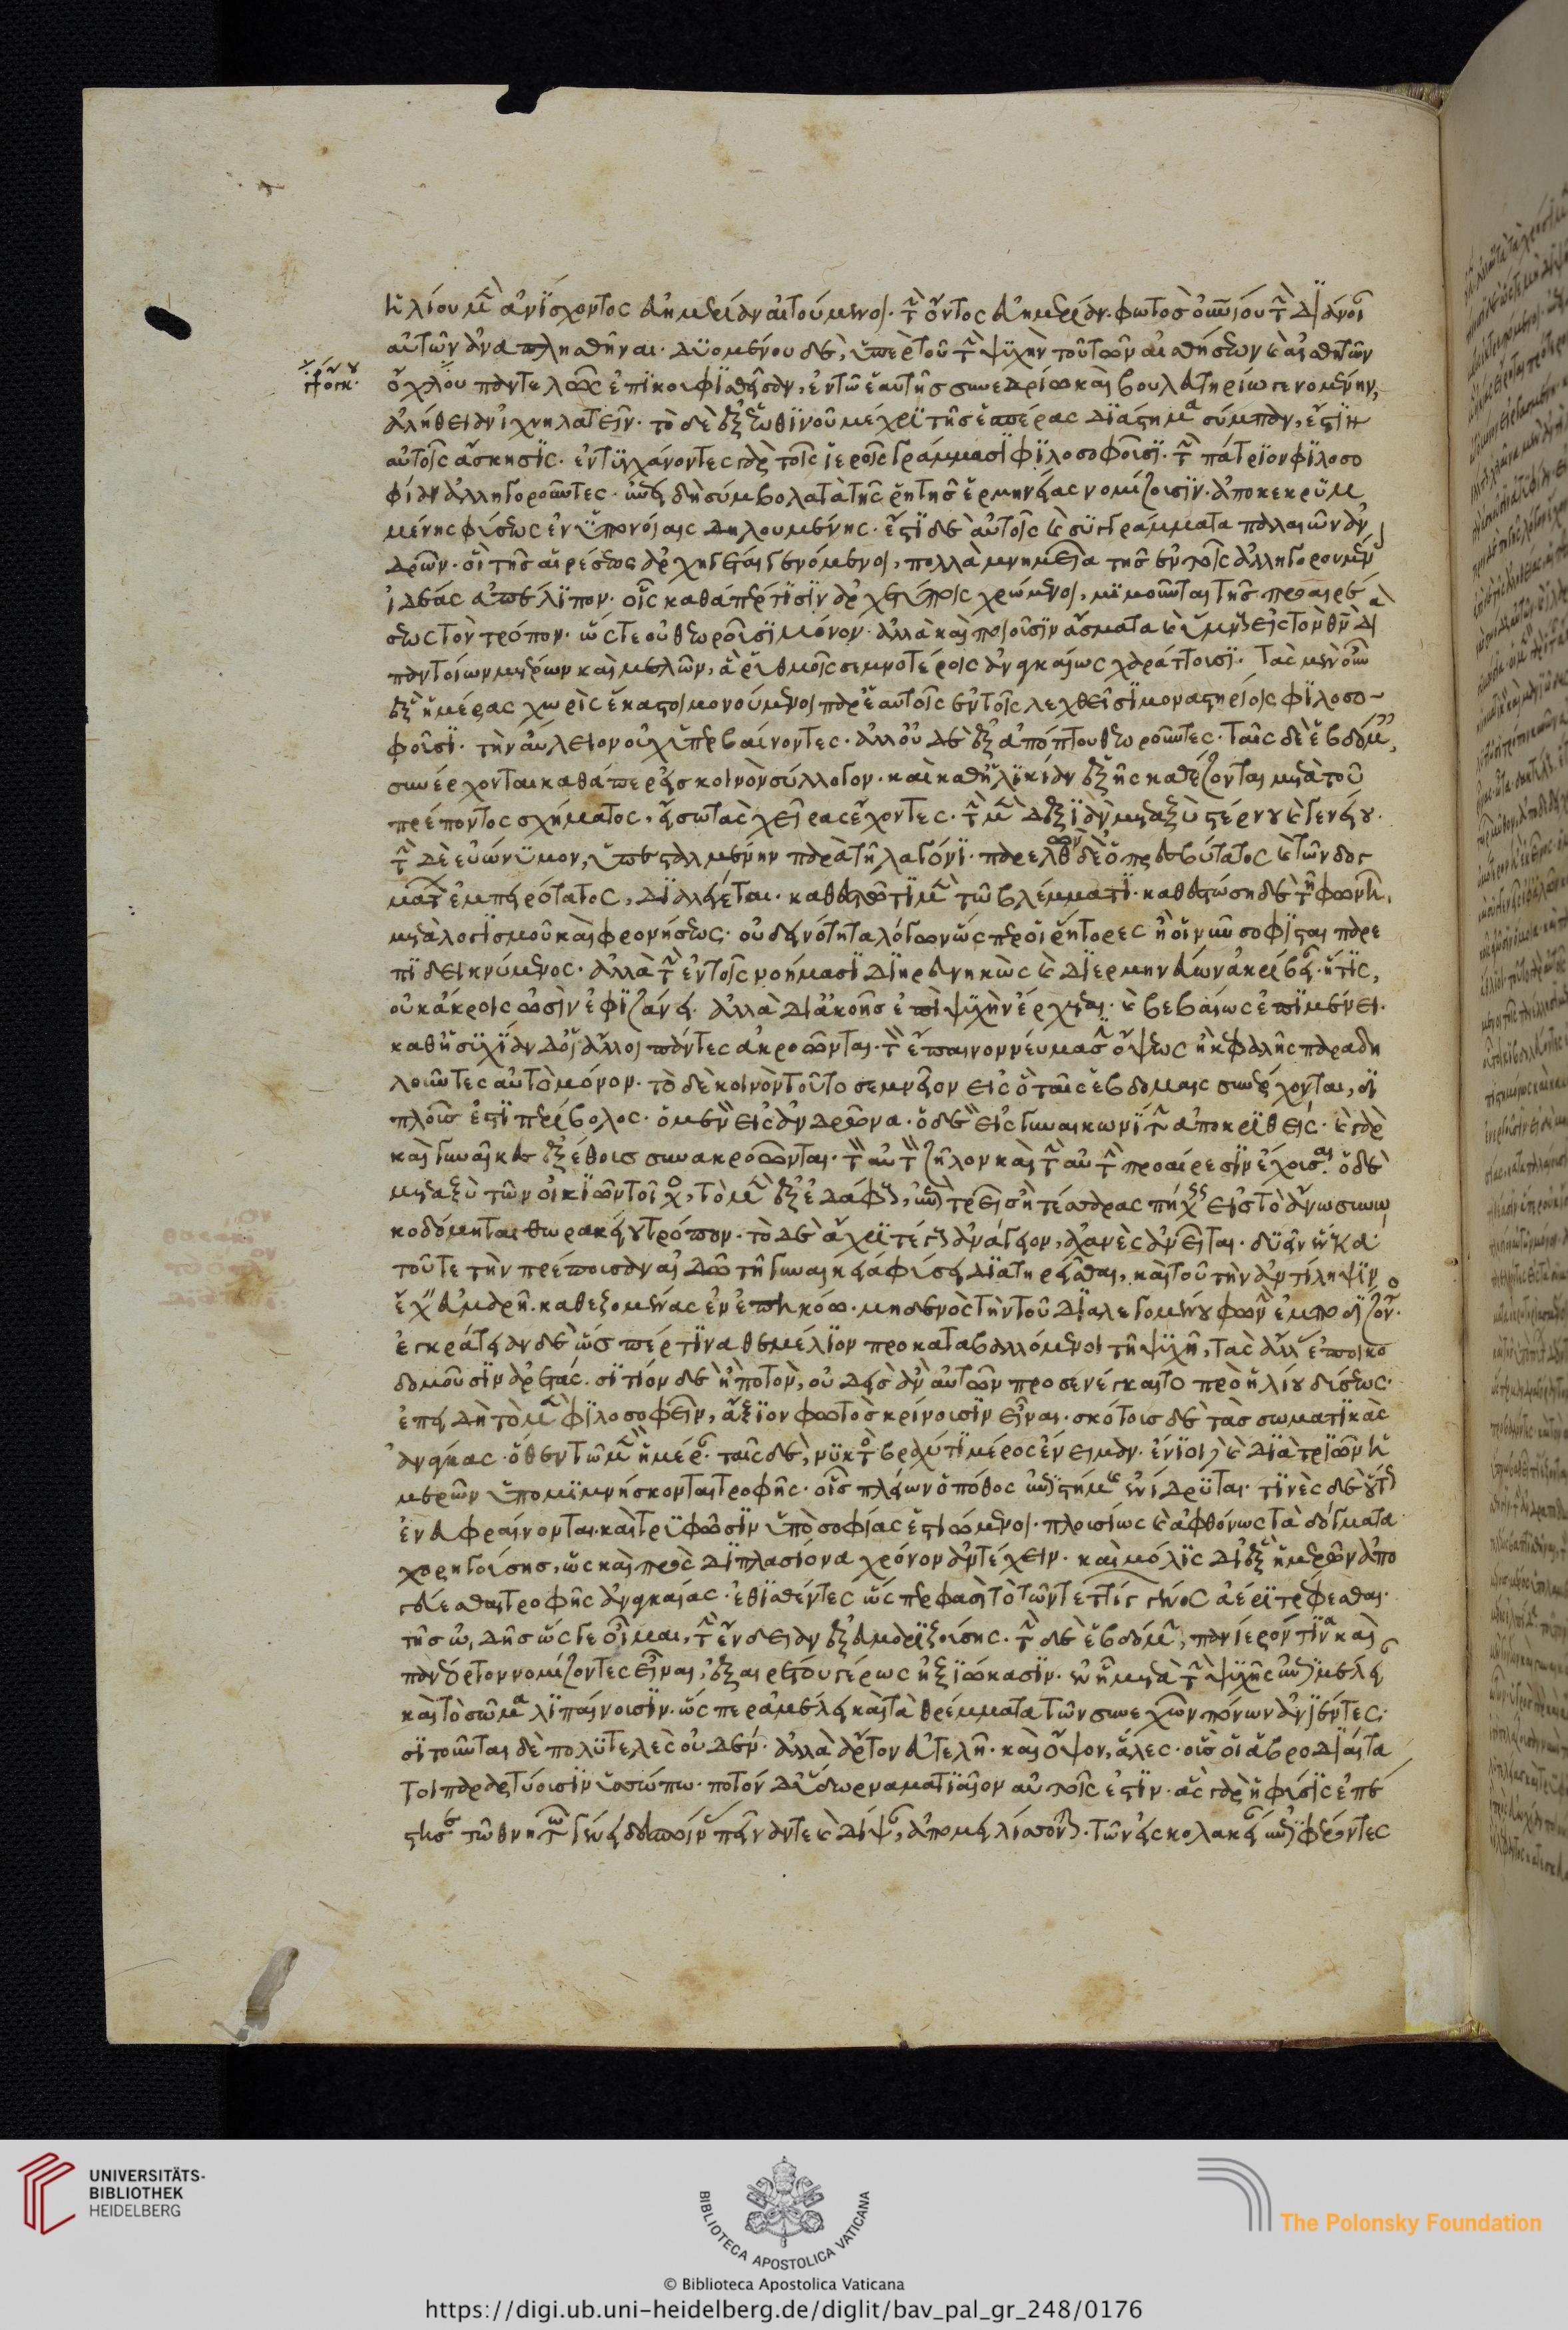 ἡλίου μὲν ἀνίσχοντος εὐημερίαν αἰτούμενοι· τὴν ὄντως εὐημερίαν. φωτὸς οὐρανίου τὴν διάνοιαν
αὐτῶν ἀναπλησθῆναι· δυομένου δὲ, ὑπὲρ τοῦ τὴν ψυχὴν τοῦ τῶν αἰσθήσεων καὶ αἰσθητῶν
ὄχλου παντελῶς ἐπικουφισθεῖσαν, ἐν τῷ ἑαυτῆς συνεδρίῳ καὶ βουλευτηρίῳ γενομένην,
ἀλήθειαν ἰχνηλατεῖν. τὸ δὲ ἐξ ἑωθινοῦ μέχρι τῆς ἑσπέρας διάστημα σύμπαν, ἐστὶν
αὐτοῖς ἄσκησις· ἐντυγχάνοντες γὰρ τοῖς ἱεροῖς γράμμασι φιλοσοφοῦσι· τὴν πάτριον φιλοσο
φίαν ἀλληγοροῦντες· ἐπειδὴ σύμβολα τὰ τῆς ῥητῆς ἑρμηνείας νομίζουσιν· ἀποκεκρυμ
μένης φύσεως ἐν ὑπονοίαις δηλουμένης· ἔστι δὲ αὐτοῖς καὶ συγγράμματα παλαιῶν ἀν
δρῶν· οἳ τῆς αἱρέσεως ἀρχηγέται γενόμενοι, πολλὰ μνημεῖα τῆς ἐν τοῖς ἀλληγορουμένοις
ἰδέας ἀπέλιπον· οἷς καθάπερ τισὶν ἀρχετύποις χρώμενοι, μιμοῦνται τῆς προαιρέ
σεως τὸν τρόπον· ὥστε οὐ θεωροῦσι μόνον· ἀλλὰ καὶ ποιοῦσιν ᾄσματα καὶ ὕμνους εἰς τὸν θν διὰ
παντοίων μέτρων καὶ μελῶν, ἃ ῥυθμοῖς σεμνοτέροις ἀναγκαίως χαράττουσι. τὰς μὲν οὖν
ἓξ ἡμέρας χωρὶς ἕκαστοι μονούμενοι παρ' ἑαυτοῖς ἐν τοῖς λεχθεῖσι μοναστηρίοις φιλοσο-
φοῦσι· τὴν αὔλειον οὐχ ὑπερβαίνοντες· ἀλλ' οὐδὲ ἐξ ἀπόπτου θεωροῦντες· ταῖς δὲ ἑβδόμαις,
συνέρχονται καθάπερ εἰς κοινὸν σύλλογον· καὶ καθ' ἡλικίαν ἑξῆς καθέζονται μετὰ τοῦ
πρέποντος σχήματος, εἴσω τὰς χεῖρας ἔχοντες· τὴν μὲν δεξιὰν μεταξὺ στέρνου καὶ γενείου·
τὴν δὲ εὐώνυμον, ὑπεσταλμένην παρὰ τῇ λαγόνι· παρελθὼν δὲ ὁ πρεσβύτατος καὶ τῶν δογ
μάτων ἐμπειρότατος, διαλέγεται· καθεστῶτι μὲν τῷ βλέμματι· καθεστώσῃ δὲ τῇ φωνῇ,
μετὰ λογισμοῦ καὶ φρονήσεως· οὐ δεινότητα λόγων ὥσπερ οἱ ῥήτορες ἢ οἱ νῦν σοφισταὶ παρε
πιδεικνύμενος· ἀλλὰ τὴν ἐν τοῖς νοήμασι διηρευνηκὼς καὶ διερμηνεύων ἀκρίβειαν· ἥτις,
οὐκ ἄκροις ὠσὶν ἐφιζάνει· ἀλλὰ δι' ἀκοῆς ἐπὶ ψυχὴν ἔρχεται· καὶ βεβαίως ἐπιμένει·
καθ' ἡσυχίαν δὲ οἱ ἄλλοι πάντες ἀκροῶνται· τὸν ἔπαινον νεύμασιν ὄψεως ἢ κεφαλῆς παραδη
λοῦντες αὐτὸ μόνον· τὸ δὲ κοινὸν τοῦτο σεμνεῖον εἰς ὃ ταῖς ἑβδόμαις συνέρχονται, δι
πλοῦς ἐστι περίβολος· ὁ μὲν εἰς ἀνδρῶνα· ὁ δὲ εἰς γυναικωνῖτιν ἀποκριθείς· καὶ γὰρ
καὶ γυναῖκες ἐξ ἔθους συνακροῶνται· τὸν αὐτὸν ζῆλον καὶ τὴν αὐτὴν προαίρεσιν ἔχουσαι· ὁ δὲ
μεταξὺ τῶν οἴκων τοῖχος, τὸ μὲν ἐξ ἐδάφους, ἐπὶ τρεῖς ἢ τέσσαρας πήχεις εἰς τὸ ἄνω συνῳ
κοδόμηται θωρακείου τρόπον· τὸ δὲ ἄχρι τέγους ἀνάγειον, ἀχανὲς ἀνεῖται· δυεῖν ἕνεκα·
τοῦ τε τὴν πρέπουσαν αἰδῶ τῇ γυναικείᾳ φύσει διατηρεῖσθαι, καὶ τοῦ τὴν ἀντίληψιν
ἔχειν εὐμαρῆ· καθεζομένας ἐν ἐπηκόῳ· μηδενὸς τὴν τοῦ διαλεγομένου φωνὴν ἐμποδίζοντος·
ἐγκράτειαν δὲ ὥσπερ τινα θεμέλιον προκαταβαλλόμενοι τῇ ψυχῇ, τὰς ἄλλας ἐποικο
δομοῦσιν ἀρετάς· σιτίον δὲ ἢ ποτὸν, οὐδεὶς ἂν αὐτῶν προσενέγκαιτο πρὸ ἡλίου δύσεως·
ἐπειδὴ τὸ μὲν φιλοσοφεῖν, ἄξιον φωτὸς κρίνουσιν εἶναι· σκότους δὲ τὰς σωματικὰς
ἀνάγκας· ὅθεν τῷ μὲν ἡμέραν· ταῖς δὲ, νυκτὸς βραχύ τι μέρος ἔνειμαν· ἔνιοι δὲ καὶ διὰ τριῶν ἡ
μερῶν ὑπομιμνήσκονται τροφῆς· οἷς πλείων ὁ πόθος ἐπιστήμης ἐνίδρυται· τινὲς δὲ οὕτως
ἐνευφραίνονται καὶ τρυφῶσιν ὑπὸ σοφίας ἑστιώμενοι· πλουσίως καὶ ἀφθόνως τὰ δόγματα
χορηγούσης, ὡς καὶ πρὸς διπλασίονα χρόνον ἀντέχειν· καὶ μόλις δι' ἓξ ἡμερῶν ἀπο
γεύεσθαι τροφῆς ἀναγκαίας· ἐθισθέντες ὥσπερ φασὶ τὸ τῶν τεττίγων γένος ἀέρι τρέφεσθαι·
τῆς ᾠδῆς ὥς γε οἶμαι, τὴν ἔνδειαν ἐξευμαριζούσης· τὴν δὲ ἑβδόμην, πανίερόν τινα καὶ
πανέορτον νομίζοντες εἶναι, ἐξαιρέτου γέρως ἠξιώκασιν· ἐν ᾗ μετὰ τὴν τῆς ψυχῆς ἐπιμέλειαν
καὶ τὸ σῶμα λιπαίνουσιν· ὥσπερ ἀμέλει καὶ τὰ θρέμματα τῶν συνεχῶν πόνων ἀνιέντες·
σιτοῦνται δὲ πολυτελὲς οὐδέν· ἀλλὰ ἄρτον εὐτελῆ· καὶ ὄψον, ἅλες· οὓς οἱ ἁβροδίαιτα
τοι παραρτύουσιν ὑσσώπῳ· ποτόν δι' ὕδωρ ναματιαῖον αὐτοῖς ἐστιν· ἃς γὰρ ἡ φύσις ἐπέ
στησε τῷ θνητῷ γένει δεσποίνας πεῖνάν τε καὶ δίψαν, ἀπομειλίσσονται· τῶν εἰς κολακείαν ἐπιφέροντες
UNIVERSITÄTS-
BIBLIOTHEK
HEIDELBERG
BIBLIOTECA APOSTOLICA VATICANA
The Polonsky Foundation
© Biblioteca Apostolica Vaticana
https://digi.ub.uni-heidelberg.de/diglit/bav_pal_gr_248/0176